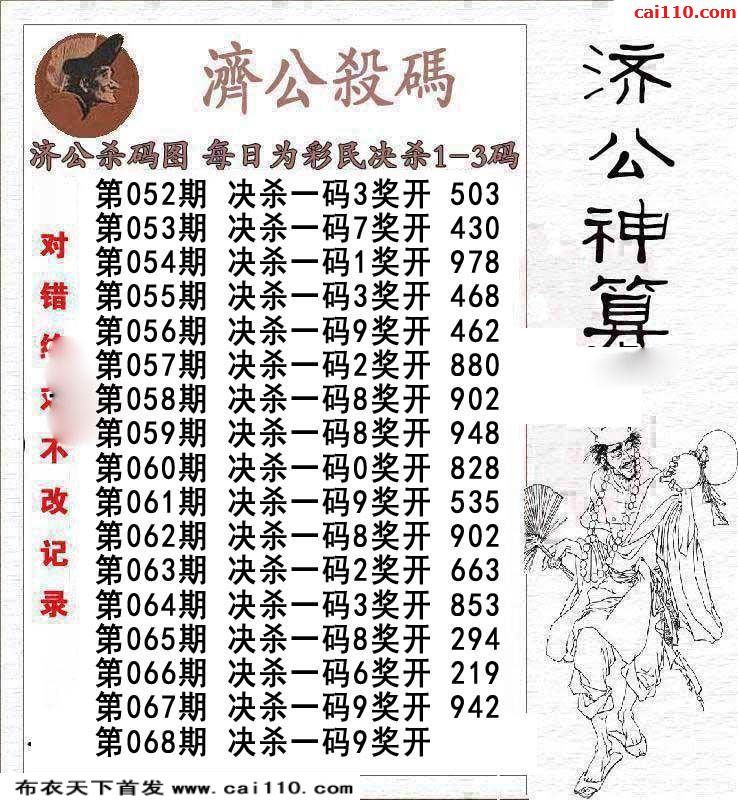 cai110.com
濟公殺碼
济公杀码图 每日为彩民决杀1-3码
第052期 决杀一码3奖开 503
第053期 决杀一码7奖开 430
第054期 决杀一码1奖开 978
第055期 决杀一码3奖开 468
第056期 决杀一码9奖开 462
第057期 决杀一码2奖开 880
第058期 决杀一码8奖开 902
第059期 决杀一码8奖开 948
第060期 决杀一码0奖开 828
第061期 决杀一码9奖开 535
第062期 决杀一码8奖开 902
第063期 决杀一码2奖开 663
第064期 决杀一码3奖开 853
第065期 决杀一码8奖开 294
第066期 决杀一码6奖开 219
第067期 决杀一码9奖开 942
第068期 决杀一码9奖开
对错不改记录
济公神算
布衣天下首发 www.cai110.com